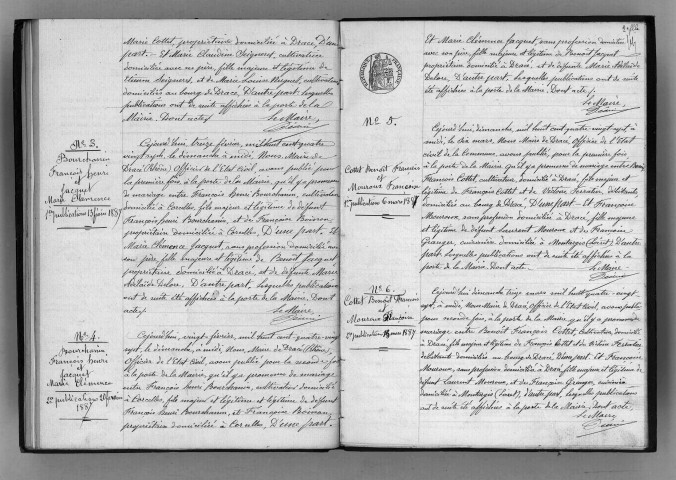 Marie Cottet, propriétaire domiciliés à Dracé, D'une
part. Et Marie Claudine Seigneurs, cultivatrice
domiciliée avec sa mère, fille majeure et légitime de
et de Marie Louise cultivatrice
domiciliée au bourg de Dracé. D'autre part. Lesquelles
publications ont de suite affichées à la porte de la
Mairie. Dont acte
Le Maire,
N° 3.
Bourchanin
François Henri
et
Jacquet
Marie Clémence
1re publication 13 février 1887
Cejourd'hui treize février, mil huit cent quatre
vingt sept, le dimanche à midi, Nous Maire de
Dracé (Rhône) Officier de l'Etat Civil, avons publié pour
la première fois, à la porte de la Mairie, qu'il y a promesse
de mariage entre François Henri Bourchanin, cultivateur
domicilié à Corcelles, fils majeur et légitime de défunt
François Henri Bourchanin, et de Françoise
propriétaire domiciliée à Corcelles. D'une part. Et
Marie Clémence Jacquet, sans profession domiciliée avec
son père, fille majeure et légitime de Benoît Jacquet
propriétaire domicilié à Dracé, et de défunte Marie
Delore. D'autre part. Lesquelles publications
ont de suite affichées à la porte de la Mairie. Dont
acte
Le Maire,
N° 4.
Bourchanin
François Henri
et
Jacquet
Marie Clémence
2e publication 20 février
1887
Cejourd'hui, vingt février, mil huit cent quatre-vingt
sept, le dimanche, à midi, Nous, Maire de Dracé (Rhône)
Officier de l'Etat Civil, avons publié pour la seconde fois
à la porte de la Mairie, qu'il y a promesse de mariage
entre François Henri Bourchanin, cultivateur domicilié
à Corcelles, fils majeur et légitime de défunt
François Henri Bourchanin, et Françoise
propriétaire domiciliée à Corcelles. D'une part.
Et Marie Clémence Jacquet, sans profession domiciliée
avec son père, fille majeure et légitime de Benoît Jacquet
propriétaire domicilié à Dracé, et de défunte Marie
Delore. D'autre part. Lesquelles publications ont de suite
été affichées à la porte de la Mairie. Dont acte
Le Maire,
N° 5.
Cottet Benoît François
et
Mouroux Françoise
1re publication 6 mars 1887
Cejourd'hui dimanche, mil huit cent quatre-vingt sept, à
midi, le six mars, Nous Maire de Dracé, Officier de l'état
civil de la commune, avons publié, pour la première fois
à la porte de la Mairie qu'il y a promesse de mariage entre Benoît
François Cottet, cultivateur domicilié à Dracé, fils majeur et
légitime de François Cottet et de débitants
domiciliés au bourg de Dracé. D'une part. Et Françoise
Mouroux, sans profession domiciliée à Dracé, fille majeure
et légitime de défunt Laurent Mouroux et de Françoise
Granger, domiciliée à Montagny (Loire). D'autre
part. Lesquelles publications ont de suite été affichées à la
porte de la Mairie. Dont acte.
Le Maire
N° 6.
Cottet Benoît François
et
Mouroux Françoise
2e publication 13 mars 1887
Cejourd'hui dimanche treize mars mil huit cent quatre-
vingt sept, à midi, Nous Maire de Dracé, Officier de l'Etat Civil, avons publié
pour seconde fois, à la porte de la Mairie, qu'il y a promesse de
mariage entre Benoît François Cottet, cultivateur domicilié
à Dracé, fils majeur et légitime de François Cottet et de
débitants domiciliés au bourg de Dracé. D'une part. Et Françoise
Mouroux, sans profession, domiciliée à Dracé, fille majeure et légitime de
défunt Laurent Mouroux, et de Françoise Granger,
domiciliée à Montagny (Loire). D'autre part. Lesquelles publications
ont de suite été affichées à la porte de la Mairie. Dont acte.
Le Maire